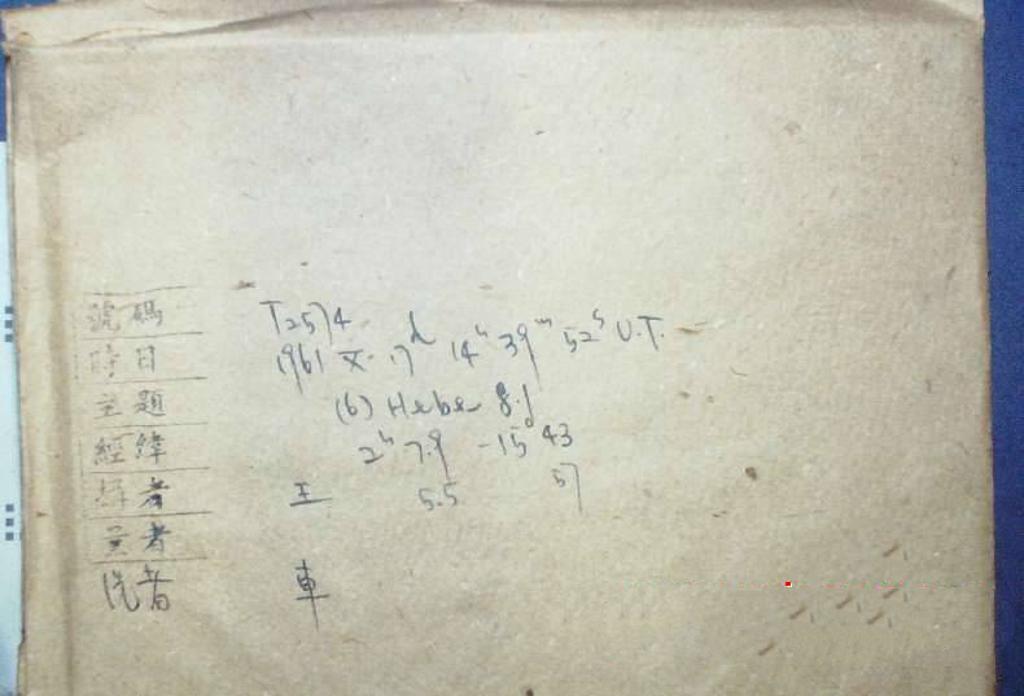 號碼 T2574
時日 1961 X. 17ᵈ 14ʰ 39ᵐ 52ˢ U.T.
主題 (6) Hebe 8.9
經緯 2ʰ 7.9 -15° 43
者 王 5.5 57
者
洗者 車